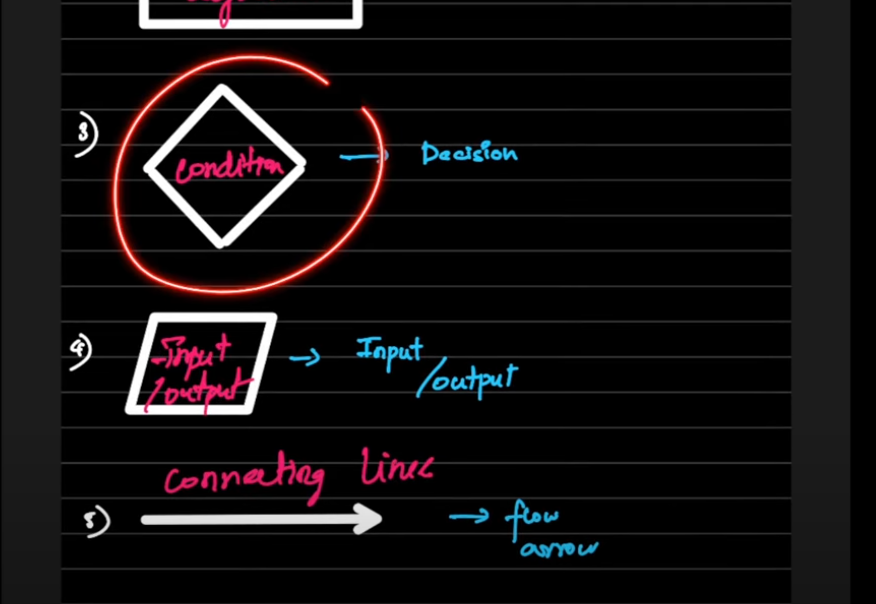 3)
condition
→ Decision
4)
Input
/output
→ Input
/output
connecting Lines
5)
→ flow
arrow